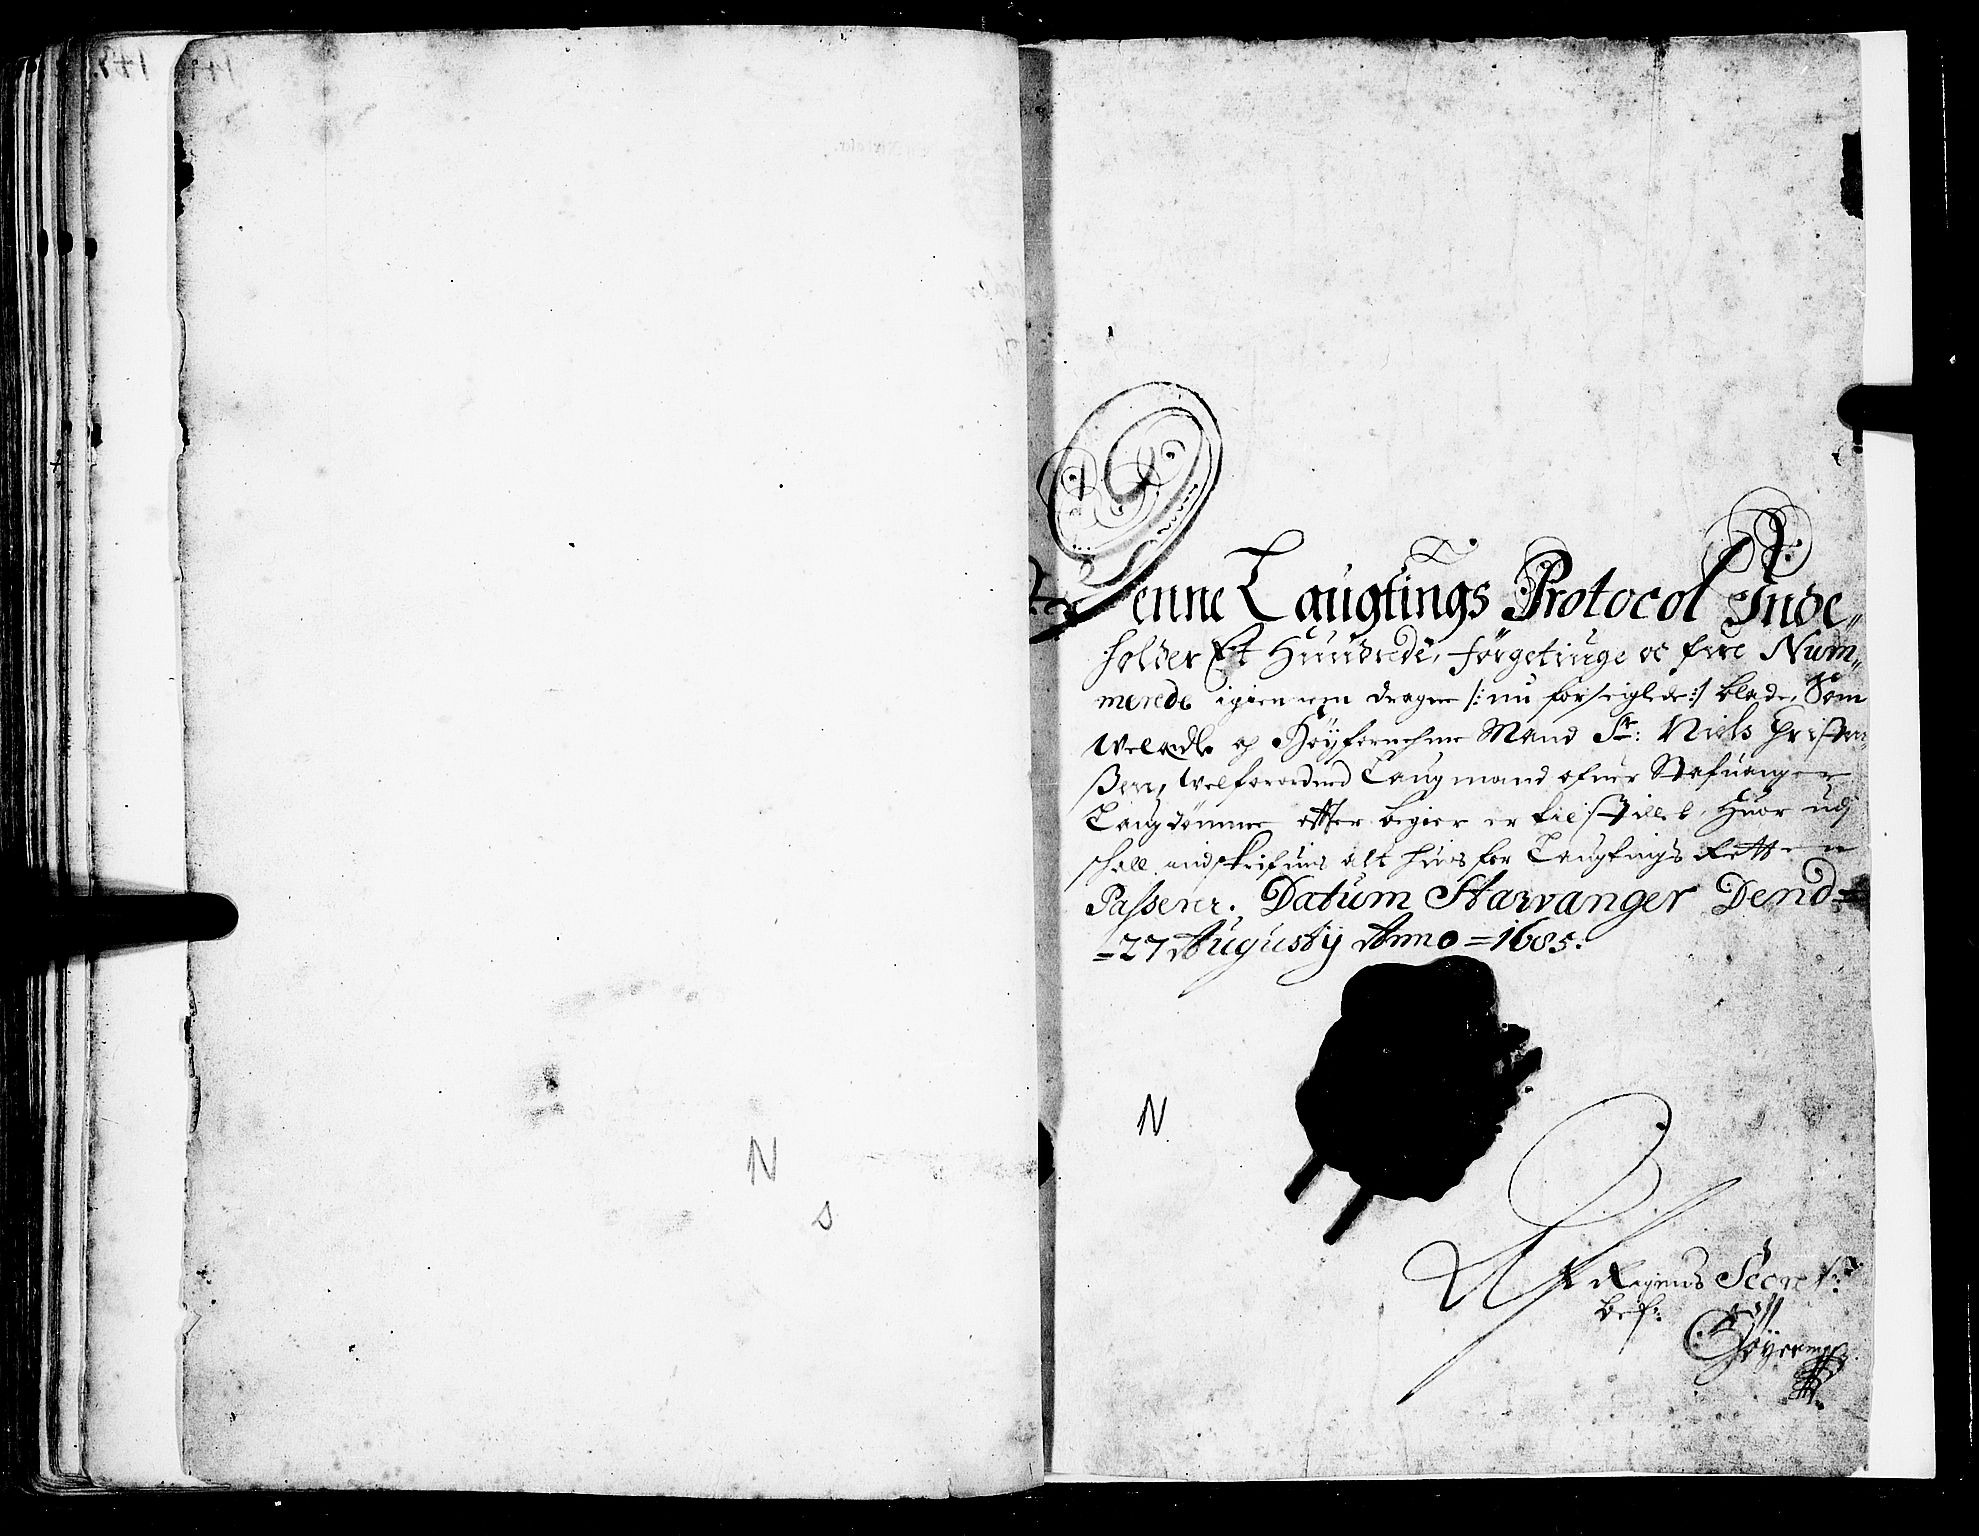 Denne Laugtings Protocol Inde„
holder Et Hundrede, förgetiuge oc fire Num„
merede igiennem dragne /: nu forseiglede :/ blade, Som
Welædle og Höyfornehme Mand Sr: Niels Christen„
ßen, Welforordned Laugmand ofuer Stafuanger
Laugdömme efter begier er tilstillet, Huor udj
schall indskrifuis alt huis for Laugtings Retten
Passerer. Datum Stavanger Dend=
=27 Augustij Anno =1685:
N
N
s
Secret: